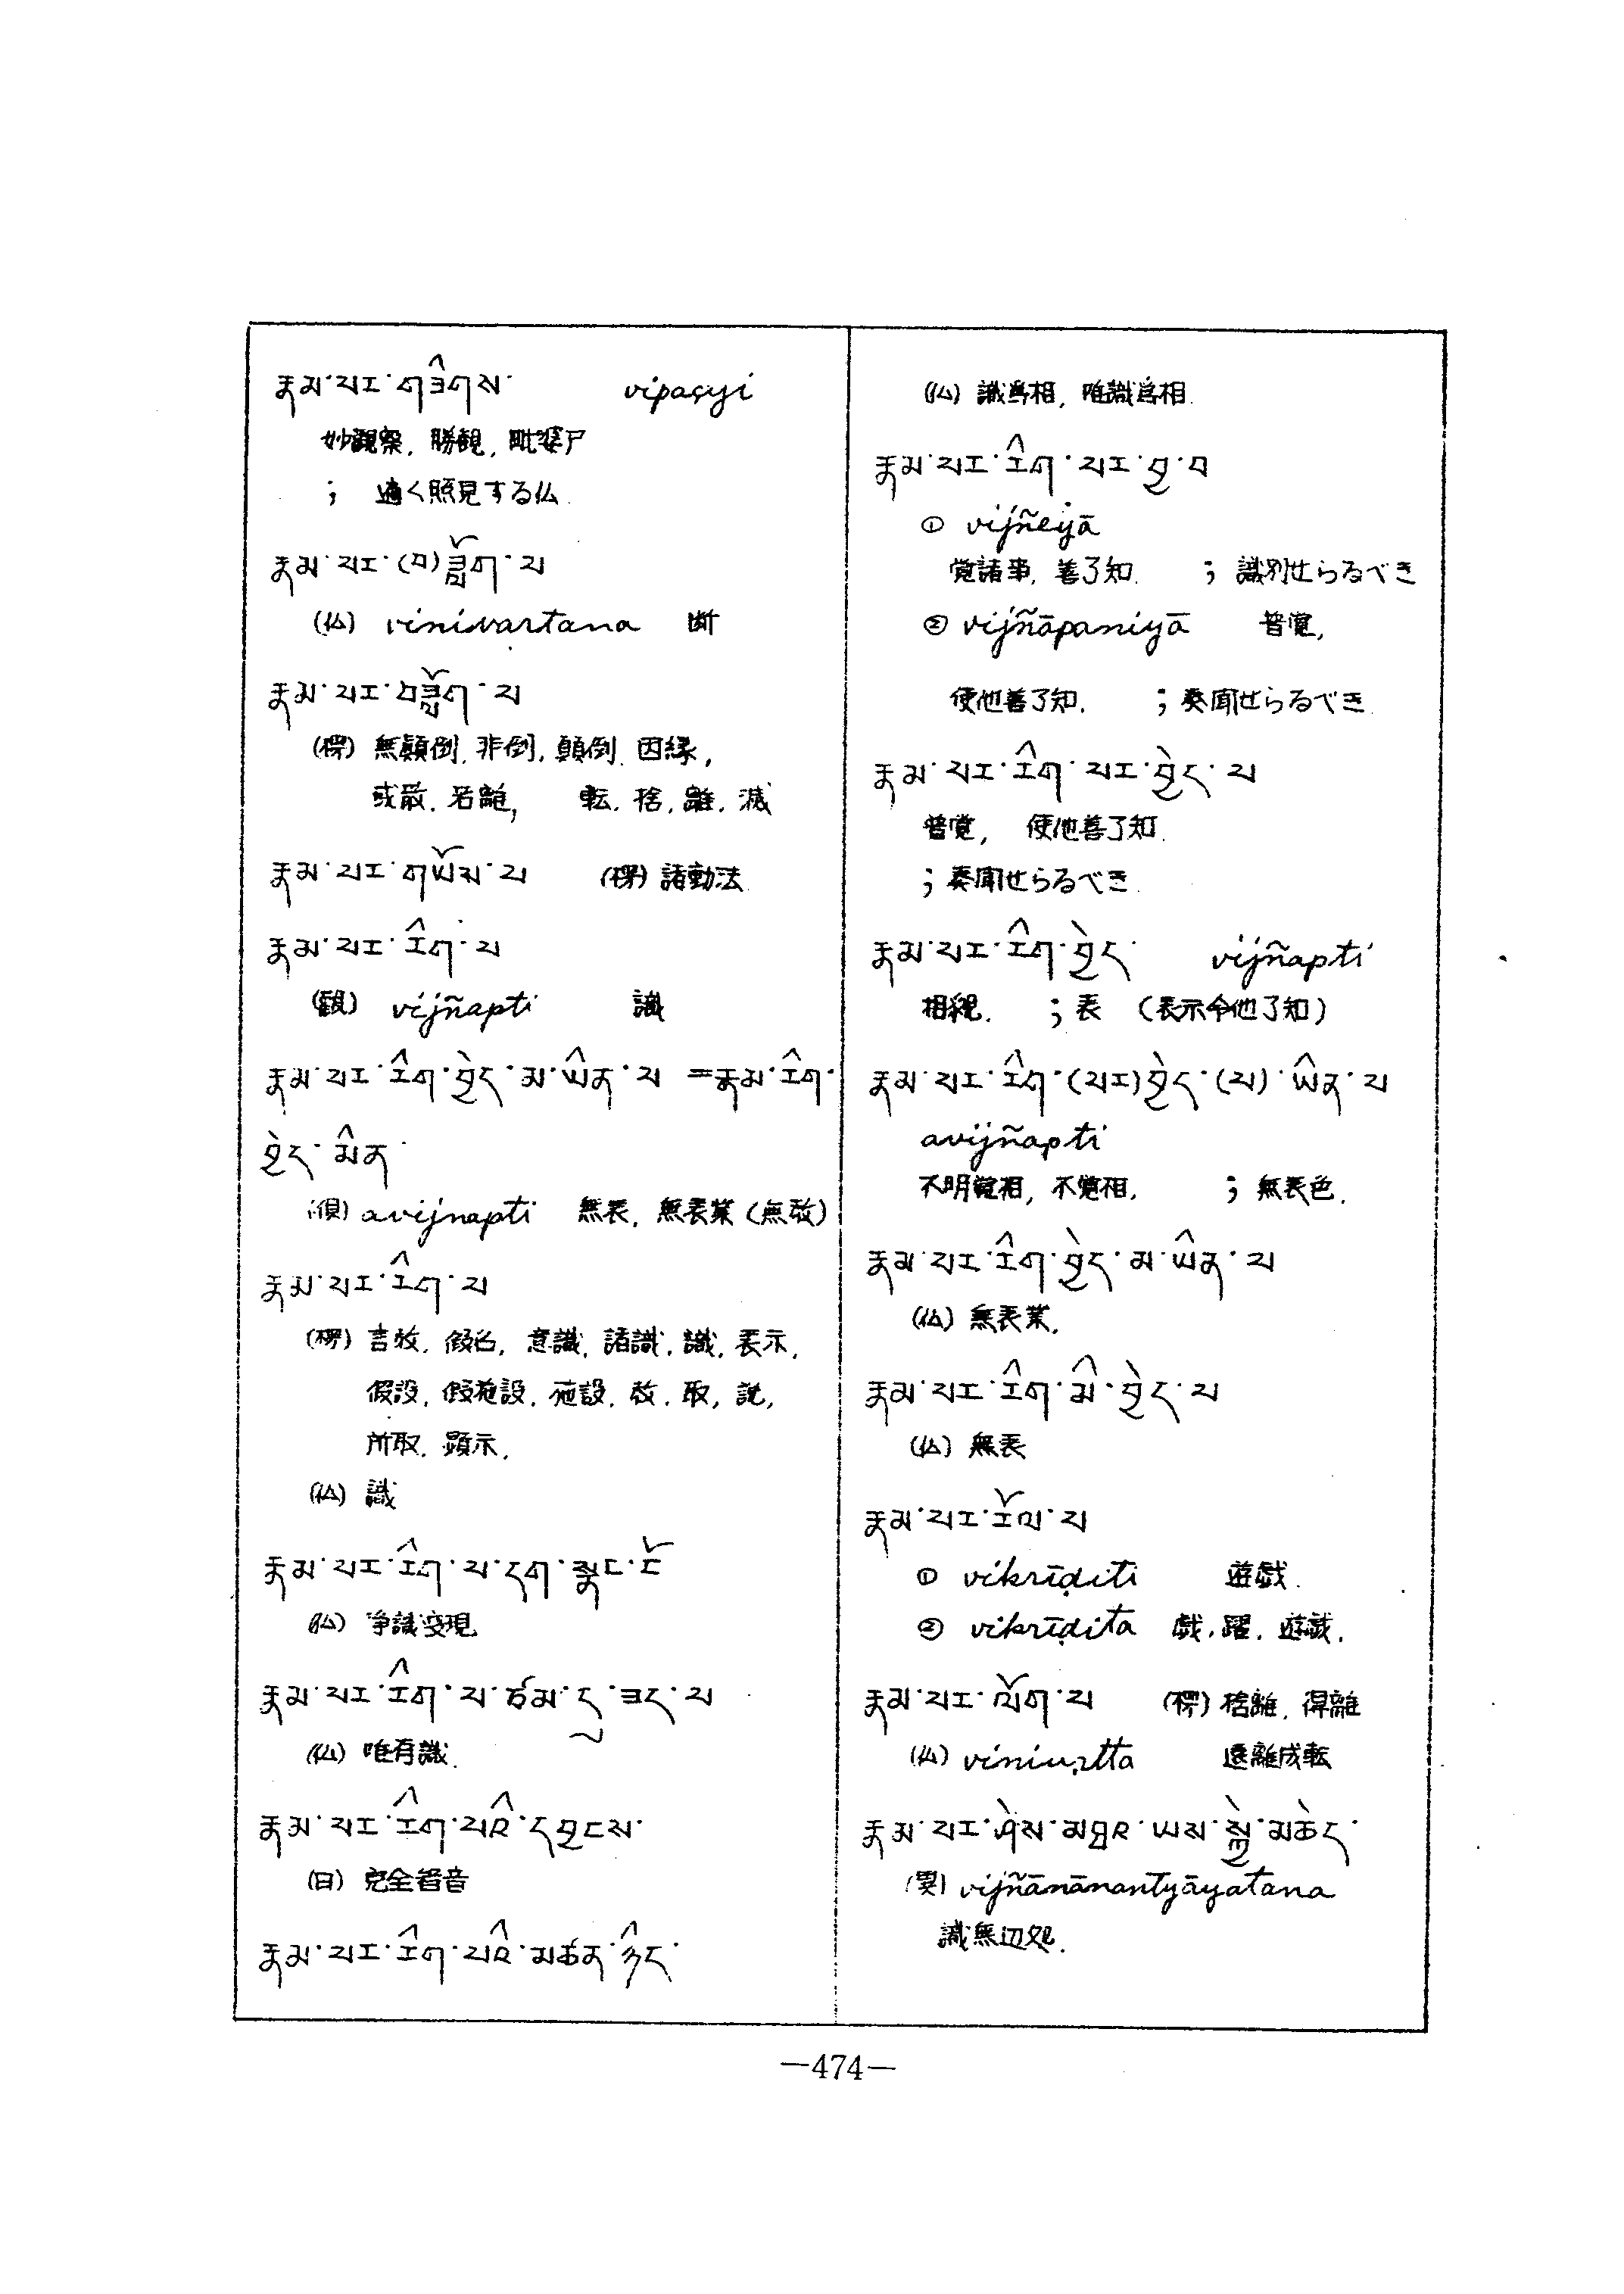 རྣམ་པར་གཟིགས་ vipaçyi
妙観察, 勝観, 毗婆尸
; 遍く照見する仏.
རྣམ་པར་(བ)ཟློག་པ
(仏) vinivartana 断
རྣམ་པར་བཟློག་པ
(楞) 無顛倒, 非倒, 顛倒, 因縁,
或散, 若離, 転, 捨, 離, 滅
རྣམ་པར་གཡོམ་པ (楞) 諸動法
རྣམ་པར་རིག་པ
(観) vijñapti 識
རྣམ་པར་རིག་བྱེད་མ་ཡིན་པ =རྣམ་རིག་
བྱེད་མིན་
(倶) avijnapti 無表, 無表業 (無教)
རྣམ་པར་རིག་པ
(楞) 言教, 假名, 意識, 諸識, 識, 表示,
假設, 假施設, 施設, 教, 取, 説,
所取, 顕示,
(仏) 識
རྣམ་པར་རིག་པ་དག་སྣང་ངོ
(仏) 浄識変現
རྣམ་པར་རིག་པ་ཙམ་དུ་ཟད་པ
(仏) 唯有識.
རྣམ་པར་རིག་པའི་དབྱངས་
(日) 完全智音
རྣམ་པར་རིག་པའི་མཚན་ཉིད་
(仏) 識爲相, 唯識爲相.
རྣམ་པར་རིག་པར་བྱ་བ
① vijñeyā
覚諸事, 善了知. ; 識別せらるべき
② vijñāpaniyā 普覚,
使他善了知. ; 奏聞せらるべき.
རྣམ་པར་རིག་པར་བྱེད་པ
普覚, 使他善了知.
; 奏聞せらるべき.
རྣམ་པར་རིག་བྱེད་ vijñapti
相縄. ; 表 (表示令他了知)
རྣམ་པར་རིག་(པར)བྱེད་(པ)་ཡིན་པ
avijñapti
不明覚相, 不覚相. ; 無表色.
རྣམ་པར་རིག་བྱེད་མ་ཡིན་པ
(仏) 無表業.
རྣམ་པར་རིག་མི་བྱེད་པ
(仏) 無表
རྣམ་པར་རོལ་པ
① vikrīḍiti 遊戯.
② vikrīḍita 戯, 躍, 遊戯.
རྣམ་པར་ལོག་པ (楞) 捨離, 得離
(仏) vinivṛtta 遠離成転
རྣམ་པར་ཤེས་མཐའ་ཡས་སྐྱེ་མཆེད་
vijñānānantyāyatana
識無辺処.
—474—